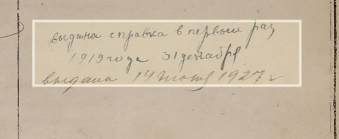 выдана справка в первый раз
1919 года 31 декабря
выдана 14 июня 1927 г